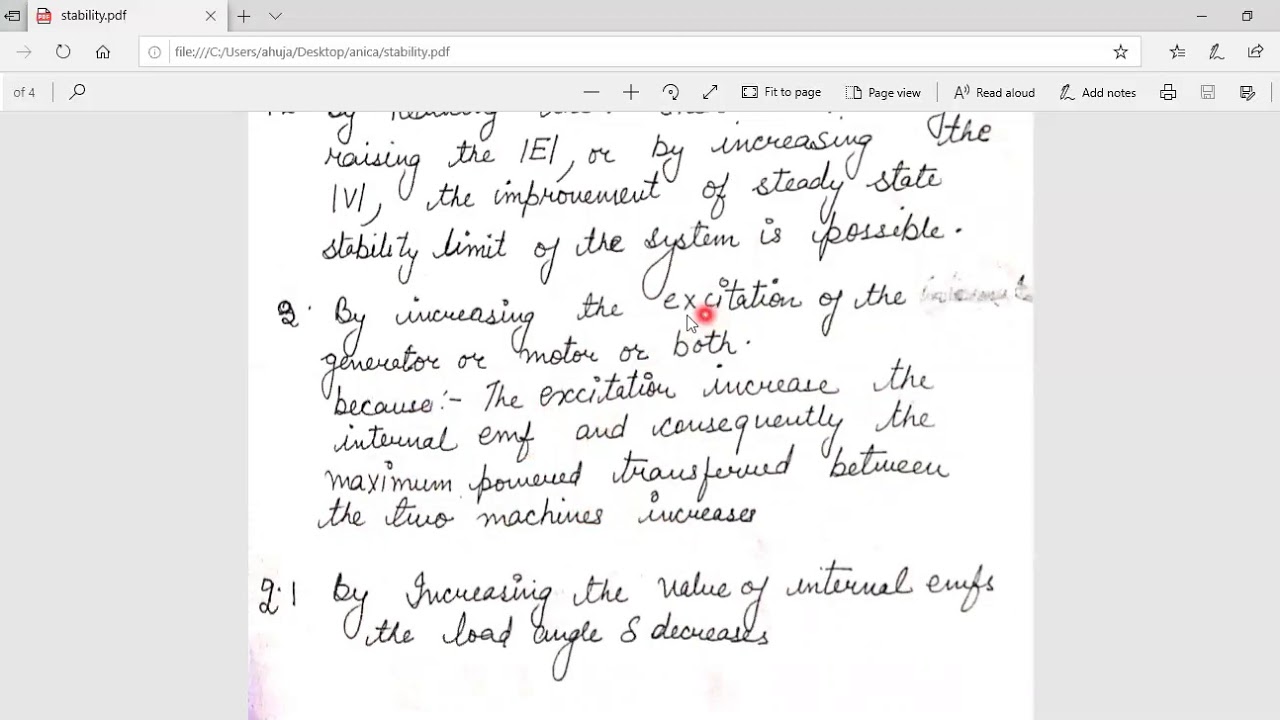 stability.pdf
file:///C:/Users/ahuja/Desktop/anica/stability.pdf
of 4
Fit to page
Page view
Read aloud
Add notes
By
raising the |E|, or by increasing the
|V|, the improvement of steady state
stability limit of the system is possible.
2. By increasing the excitation of the
generator or motor or both.
because:- The excitation increase the
internal emf and consequently the
maximum powered transferred between
the two machines increases
2.1 By Increasing the value of internal emfs
the load angle δ decreases